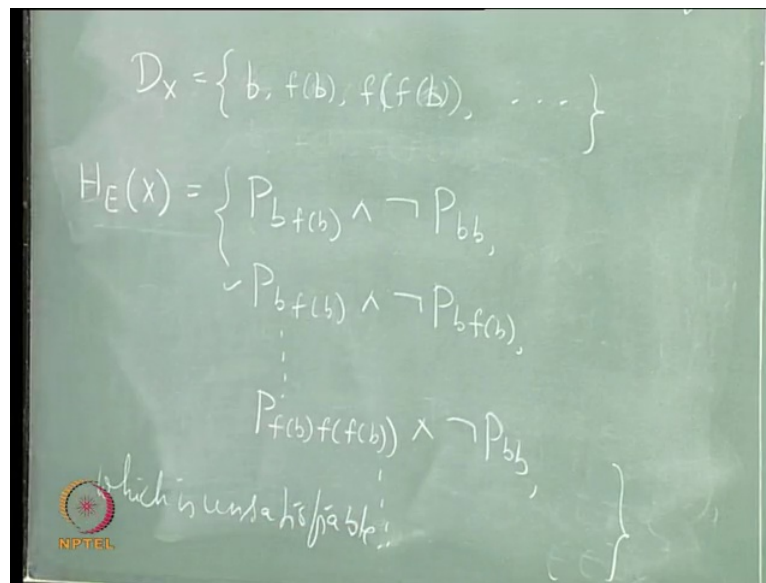 D_X = { b, f(b), f(f(b)), .... }
H_E(X) = { P_{b f(b)} ∧ ¬ P_{bb},
P_{b f(b)} ∧ ¬ P_{b f(b)},
P_{f(b) f(f(b))} ∧ ¬ P_{bb},
which is unsatisfiable. }
NPTEL